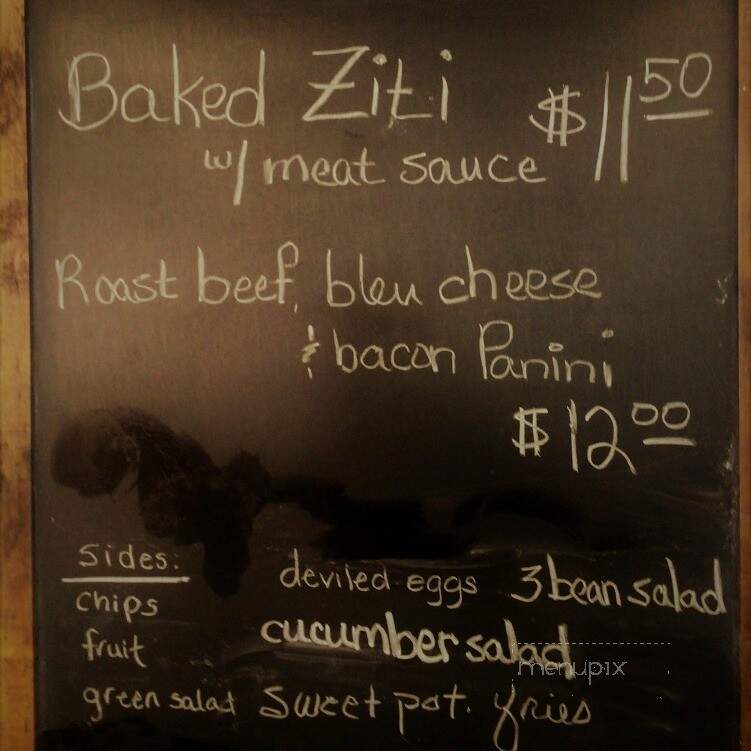 Baked Ziti $11.50
w/ meat sauce
Roast beef, bleu cheese
& bacon Panini
$12.00
Sides:
deviled eggs 3 bean salad
chips
cucumber salad
fruit
menupix
green salad sweet pot. fries